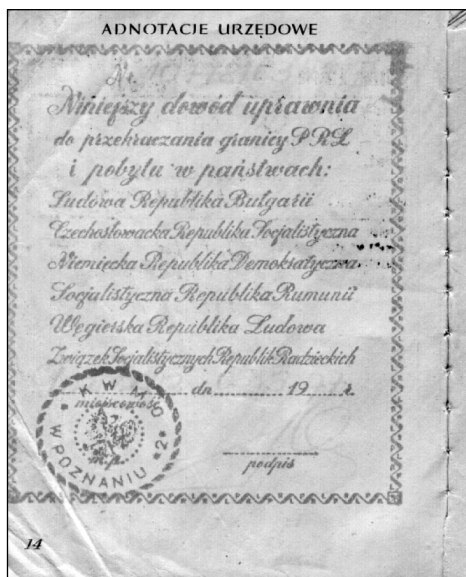 ADNOTACJE URZĘDOWE
Niniejszy dowód uprawnia
do przekraczania granicy PRL
i pobytu w państwach:
Ludowa Republika Bułgarii
Czechosłowacka Republika Socjalistyczna
Niemiecka Republika Demokratyczna
Socjalistyczna Republika Rumunii
Węgierska Republika Ludowa
Związek Socjalistycznych Republik Radzieckich
dn. 19 r.
miejscowość
K W M O
W POZNANIU
2
m.p.
podpis
14